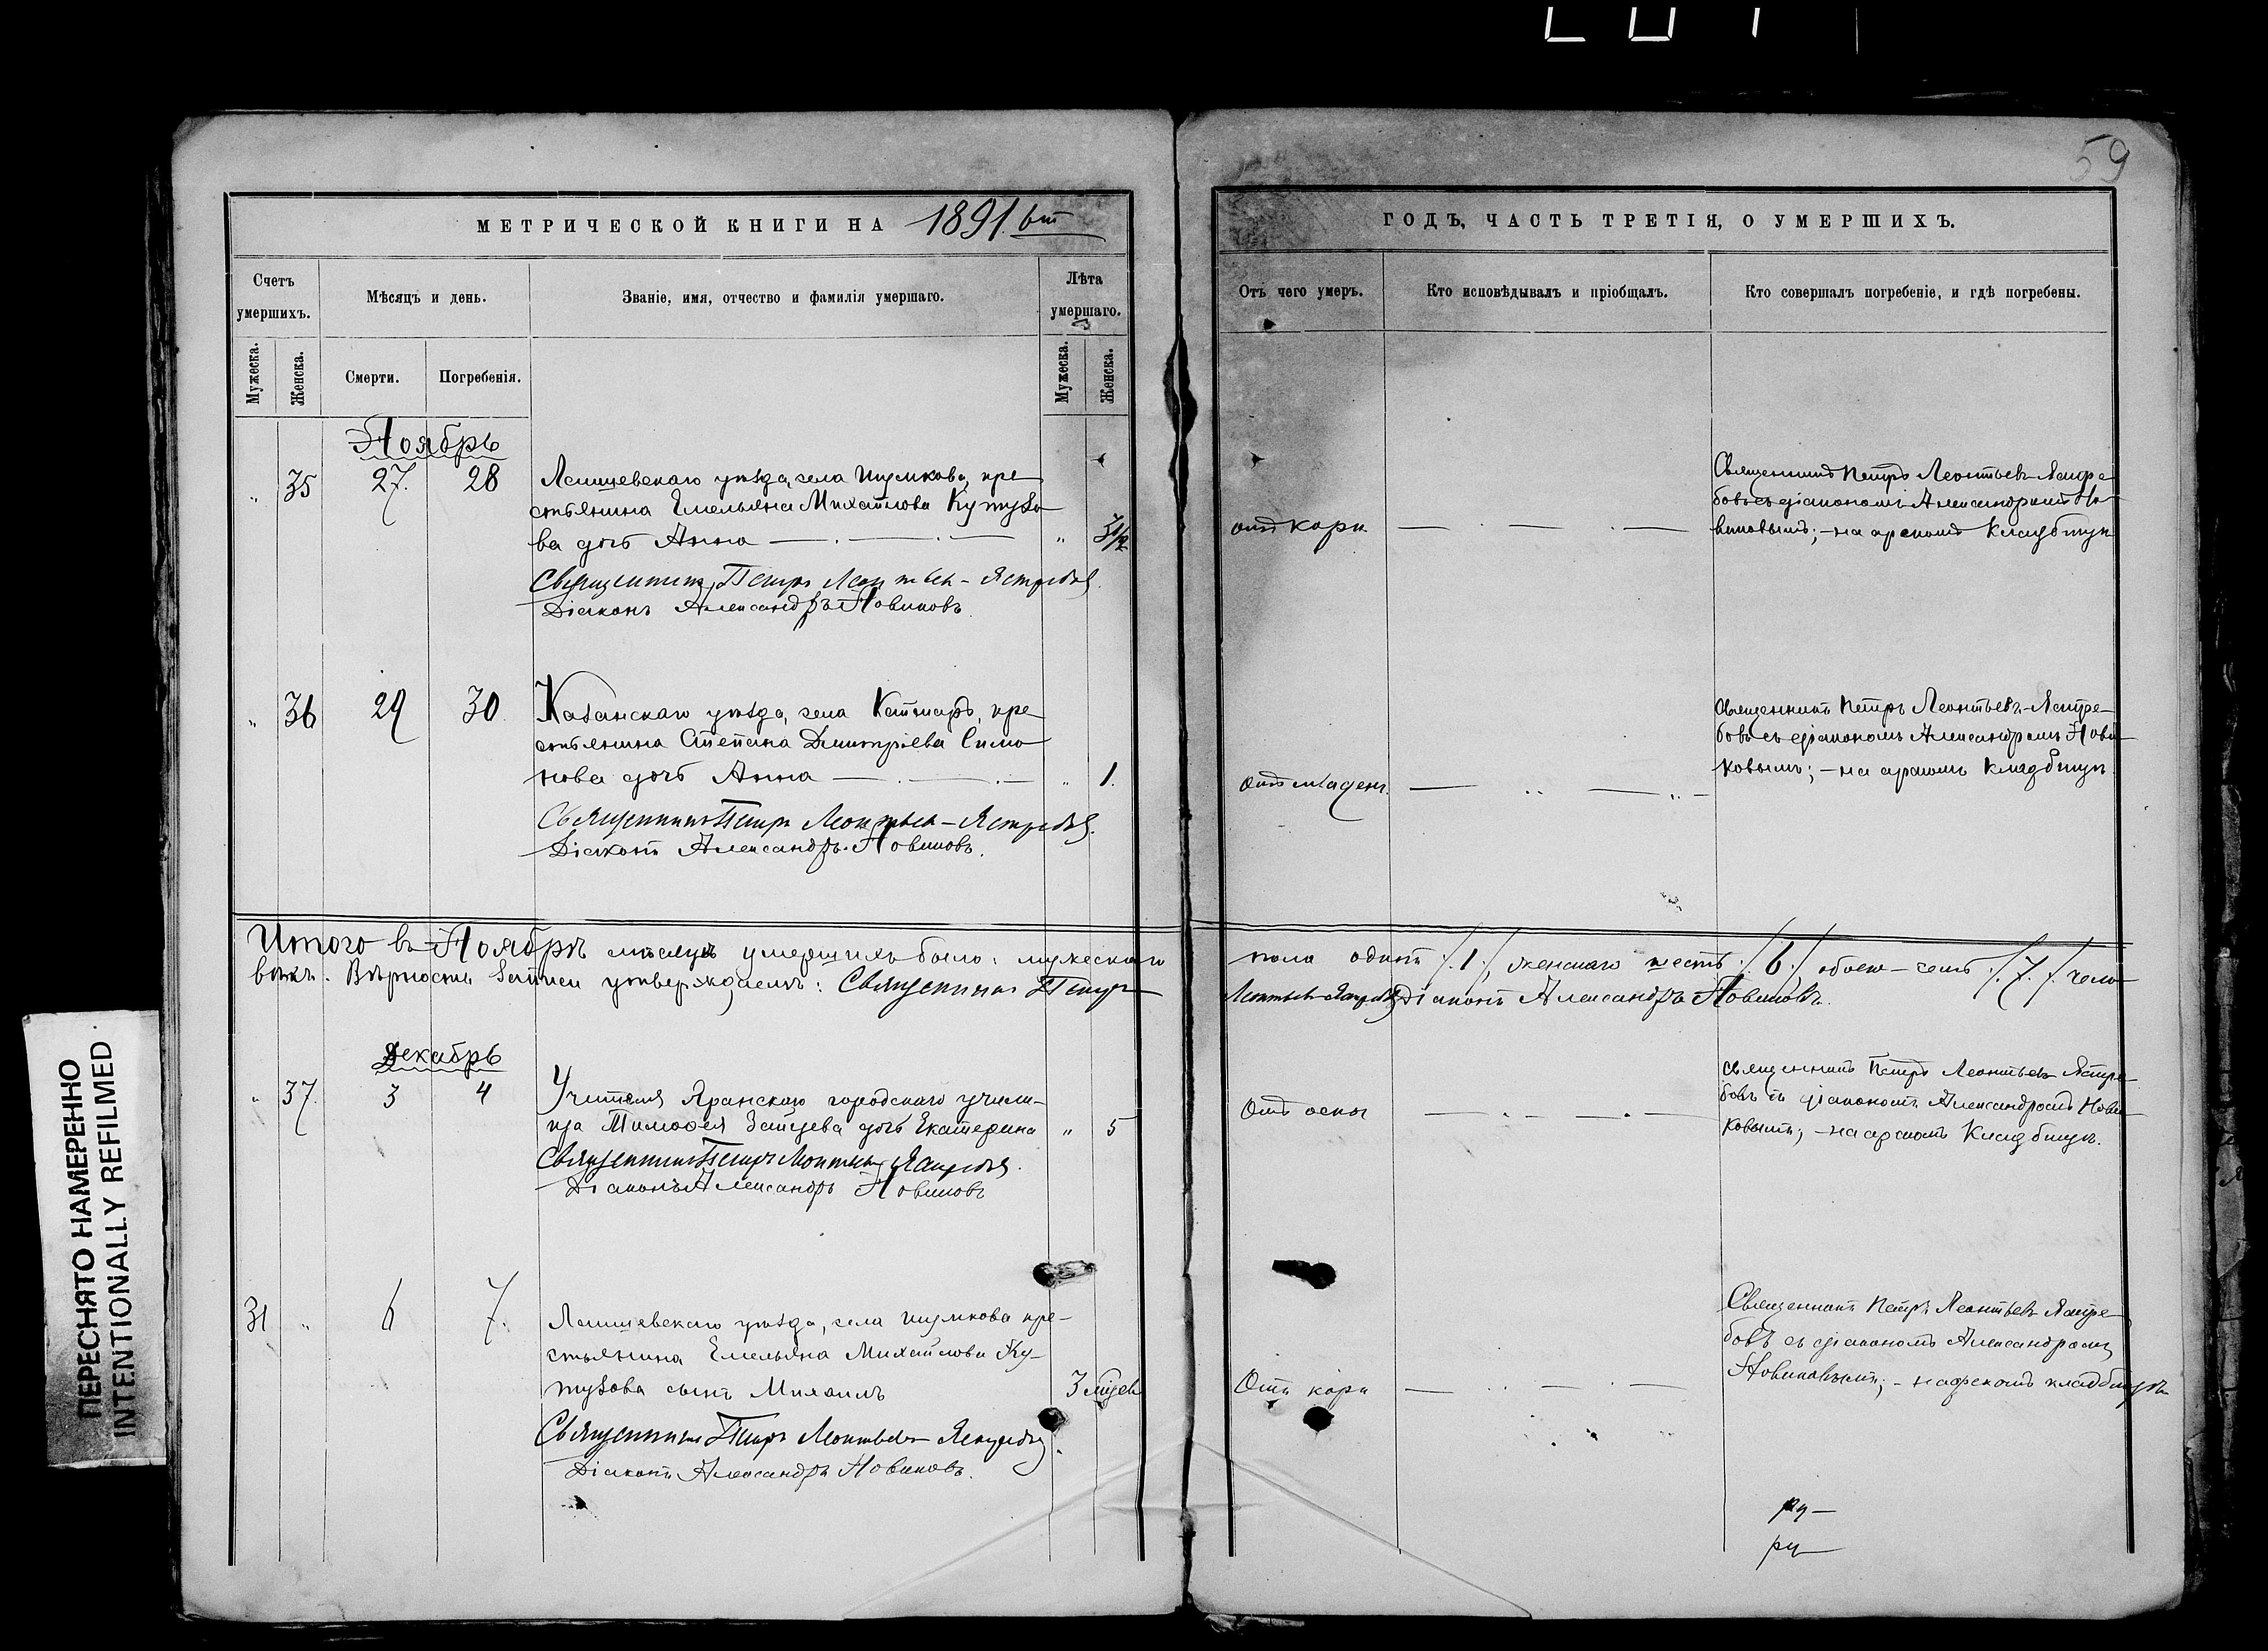 59
МЕТРИЧЕСКОЙ КНИГИ НА 1891.
ГОДЪ, ЧАСТЬ ТРЕТІЯ, О УМЕРШИХЪ.
Счетъ умершихъ.
Мѣсяцъ и день.
Званіе, имя, отчество и фамилія умершаго.
Лѣта умершаго.
Отъ чего умеръ.
Кто исповѣдывалъ и пріобщалъ.
Кто совершалъ погребеніе, и гдѣ погребены.
Мужеска.
Женска.
Смерти.
Погребенія.
Мужеска.
Женска.
Ноябрь
„ 35 27. 28
Лаишевскаго уѣзда, села Шумкова, кре-
стьянина Емельяна Михайлова Кутузо-
ва дочь Анна
„ 3 1/2
отъ кори
Священникъ Петръ Леонтьевъ-Ястре-
бовъ съ діакономъ Александромъ Но-
виковымъ; - на арскомъ кладбищѣ
Священникъ Петръ Леонтьевъ-Ястребовъ.
Діаконъ Александръ Новиковъ.
„ 36 29 30
Казанскаго уѣзда, села кре-
стьянина Степана Дмитріева Симо-
нова дочь Анна
„ 1.
Отъ младен.
Священникъ Петръ Леонтьевъ-Ястре-
бовъ съ діакономъ Александромъ Нови-
ковымъ; - на арскомъ кладбищѣ
Священникъ Петръ Леонтьевъ-Ястребовъ.
Діаконъ Александръ Новиковъ.
Итого въ Ноябрѣ мѣсяцѣ умершихъ было: мужескаго пола одинъ /.1./, женскаго шесть /.6./ обоего-семь /.7./ чело-
вѣкъ. Вѣрность записи утверждаемъ: Священникъ Петръ Леонтьевъ-Ястребовъ Діаконъ Александръ Новиковъ.
Декабрь
„ 37. 3 4
Учителя Яранскаго городскаго учили-
ща Тимофея Зайцева дочь Екатерина
„ 5
Отъ оспы
Священникъ Петръ Леонтьевъ Ястре-
бовъ съ діакономъ Александромъ Нови-
ковымъ; - на арскомъ кладбищѣ.
Священникъ Петръ Леонтьевъ Ястребовъ.
Діаконъ Александръ Новиковъ
31 „ 6 7.
Лаишевскаго уѣзда, села Шумкова кре-
стьянина Емельяна Михайлова Ку-
тузова сынъ Михаилъ
3 мѣсяц.
Отъ кори
Священникъ Петръ Леонтьевъ Ястре-
бовъ съ діакономъ Александромъ
Новиковымъ; - на арскомъ кладбищѣ
Священникъ Петръ Леонтьевъ Ястребовъ.
Діаконъ Александръ Новиковъ.
ПЕРЕСНЯТО НАМЕРЕННО
INTENTIONALLY REFILMED